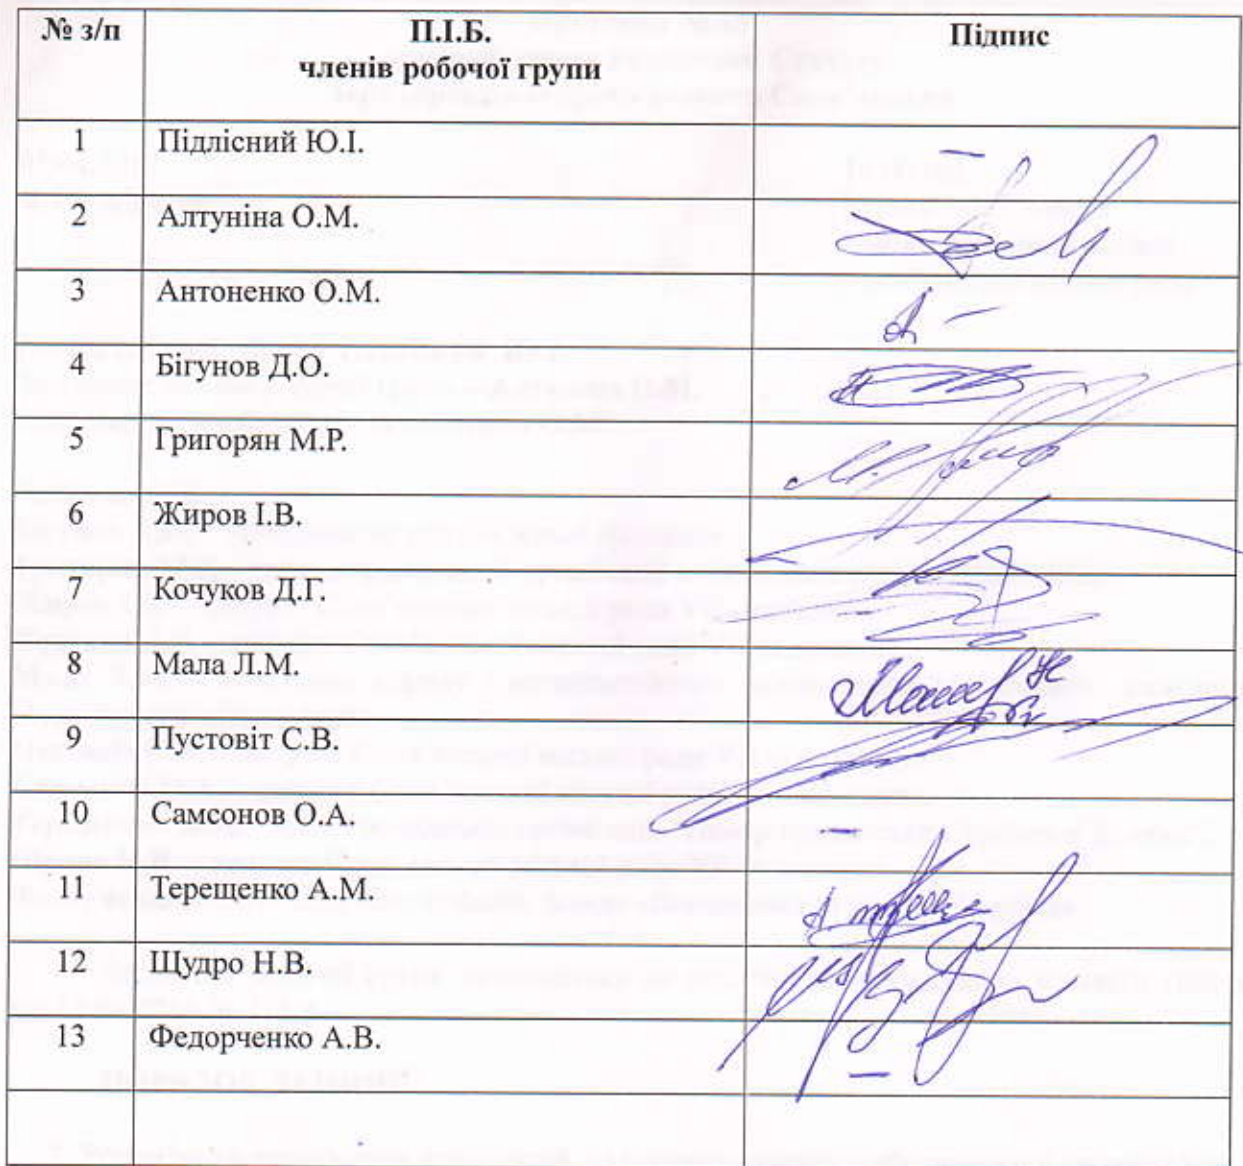 № з/п П.І.Б. Підпис
членів робочої групи
1 Підлісний Ю.І. –
2 Алтуніна О.М.
3 Антоненко О.М.
4 Бігунов Д.О.
5 Григорян М.Р.
6 Жиров І.В.
7 Кочуков Д.Г.
8 Мала Л.М.
9 Пустовіт С.В.
10 Самсонов О.А. –
11 Терещенко А.М.
12 Щудро Н.В.
13 Федорченко А.В. –